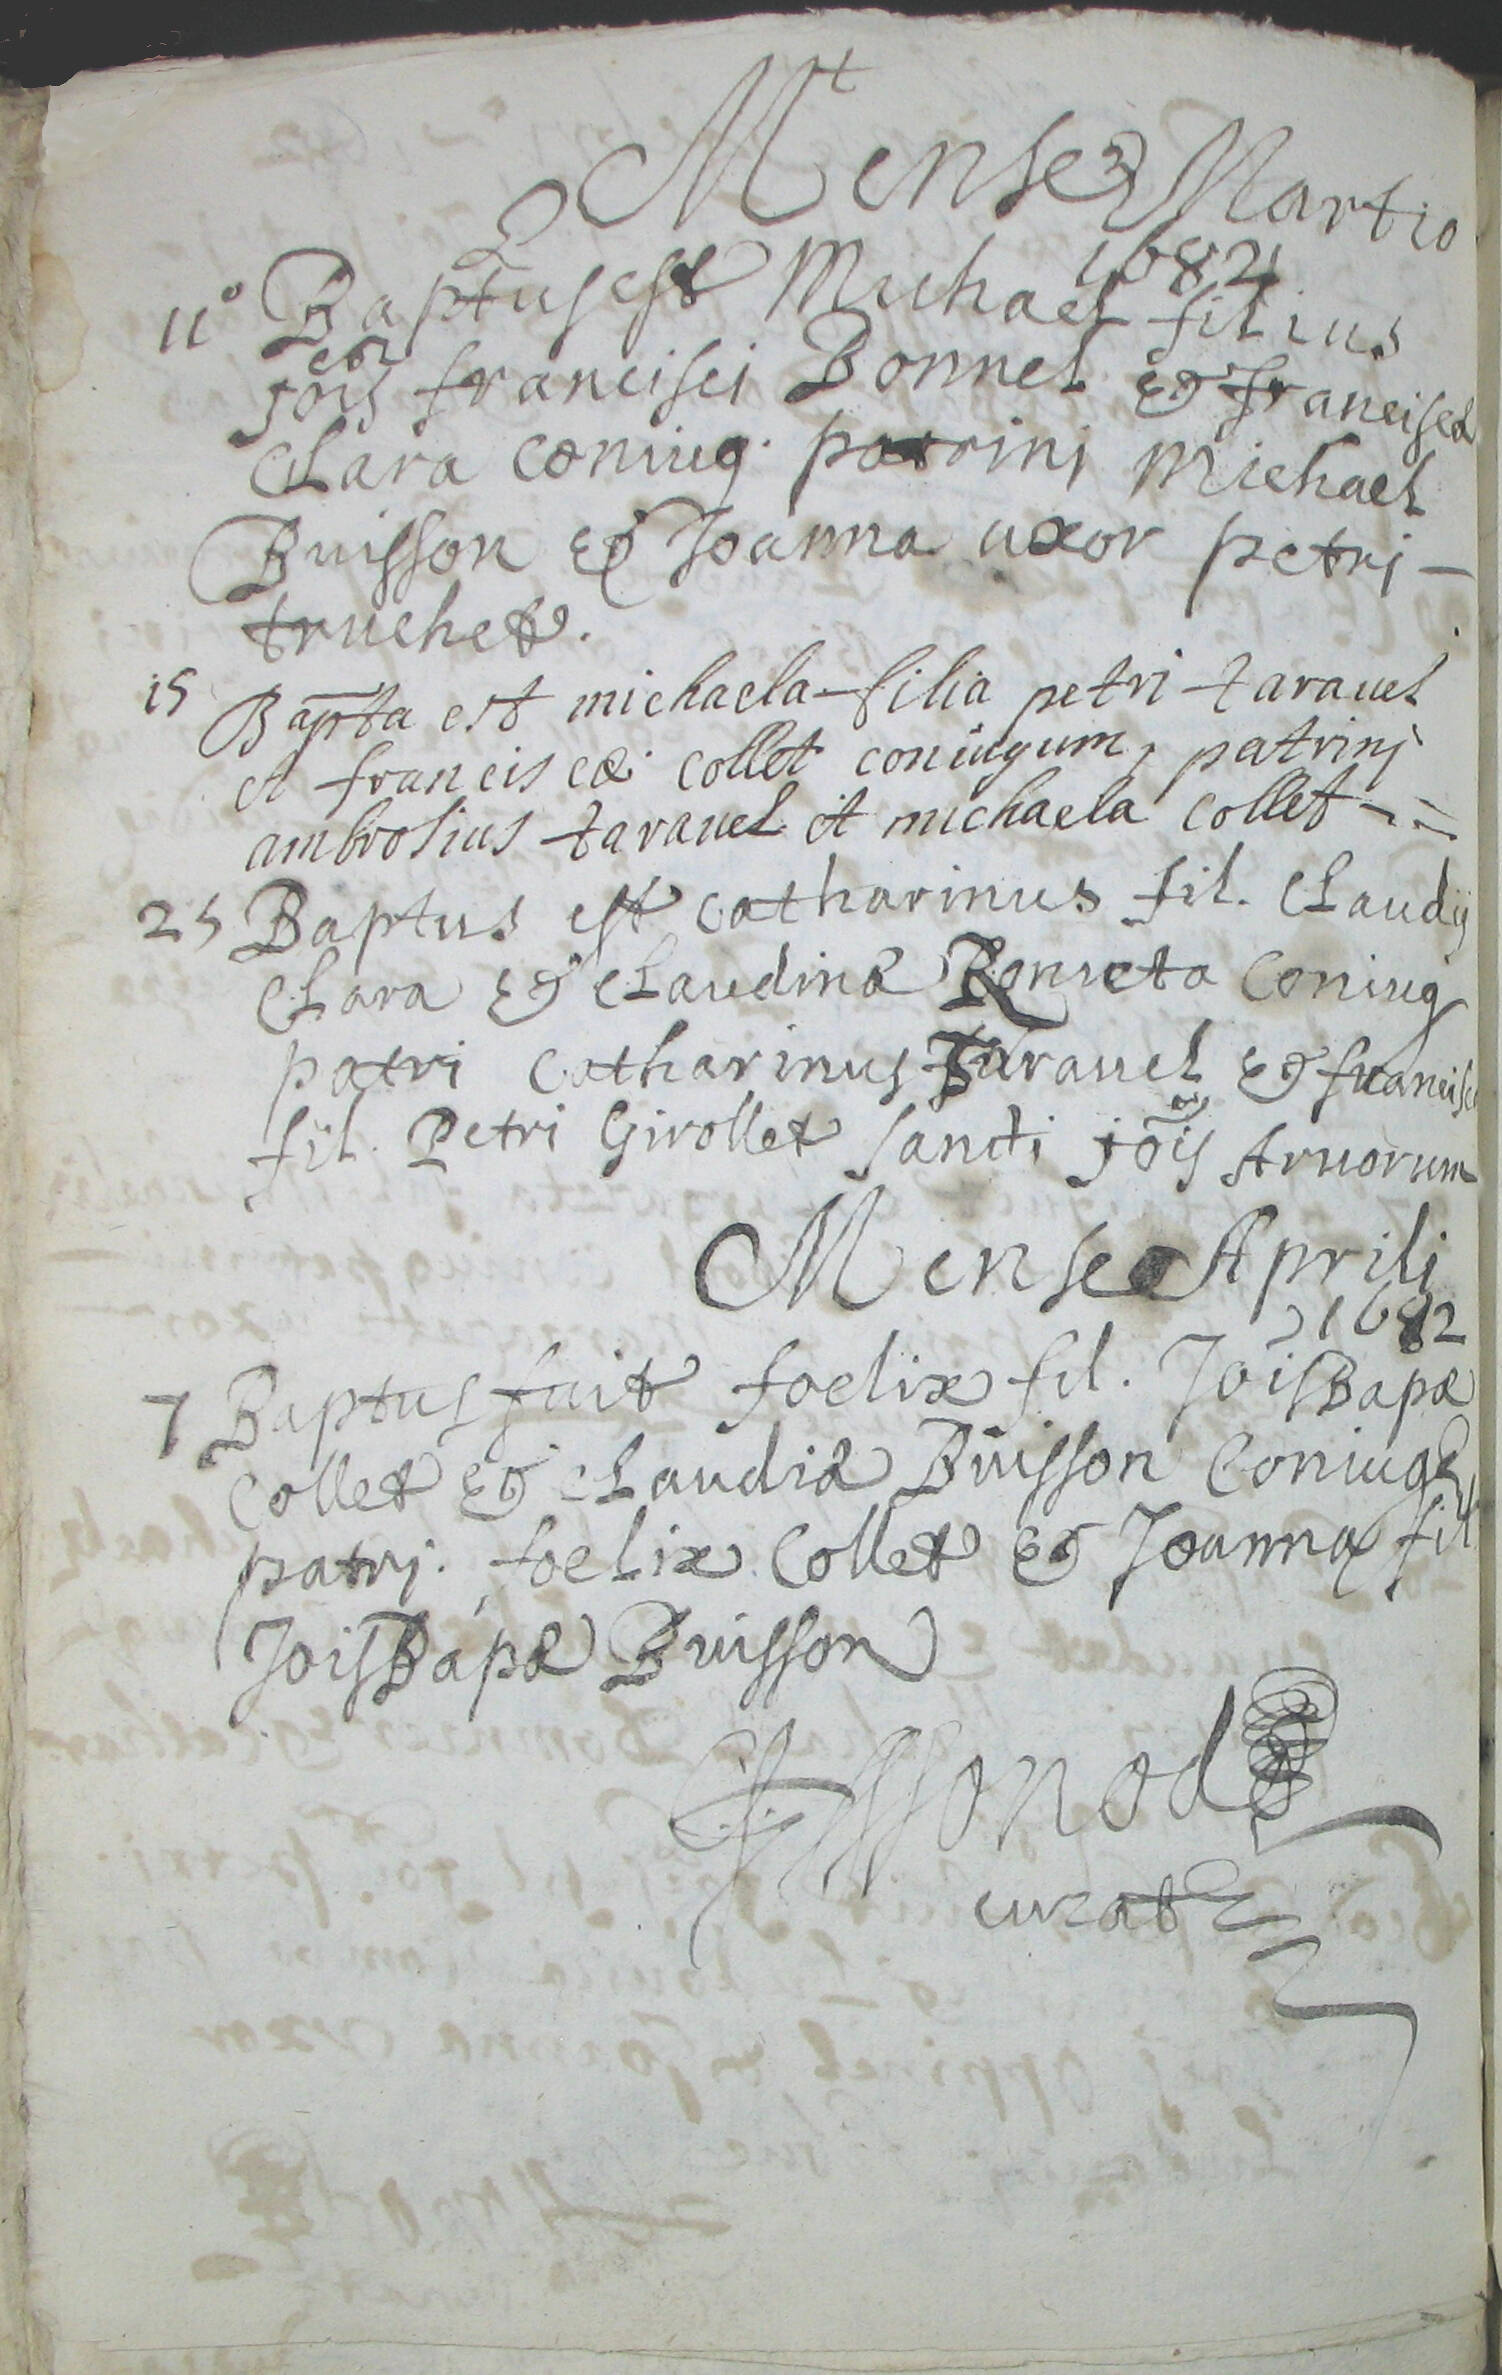 Mense Martio
1682
11° Baptus est Michael filius
Jois francisci Bonnel & franciscæ
Clara coniug. patrini Michael
Buisson & Joanna uxor petri -
truchet.
15 Bapta est michaela filia petri taravel
et franciscæ collet coniugum, patrinj
ambrosius taravel et michaela collet - =
25 Baptus est catharinus fil. Claudij
Clara & Claudinæ Ronueta coniug
patri catharinus Taravel & francisca
fil. Petri Girollet sancti jois Arvorum
Mense Aprili
1682
7 Baptus fuit foelix fil. Jois Bapæ
Collet & Claudiæ Buisson Coniug
patrj. foelix Collet & Joanna fil
Jois Bapæ Buisson
curat